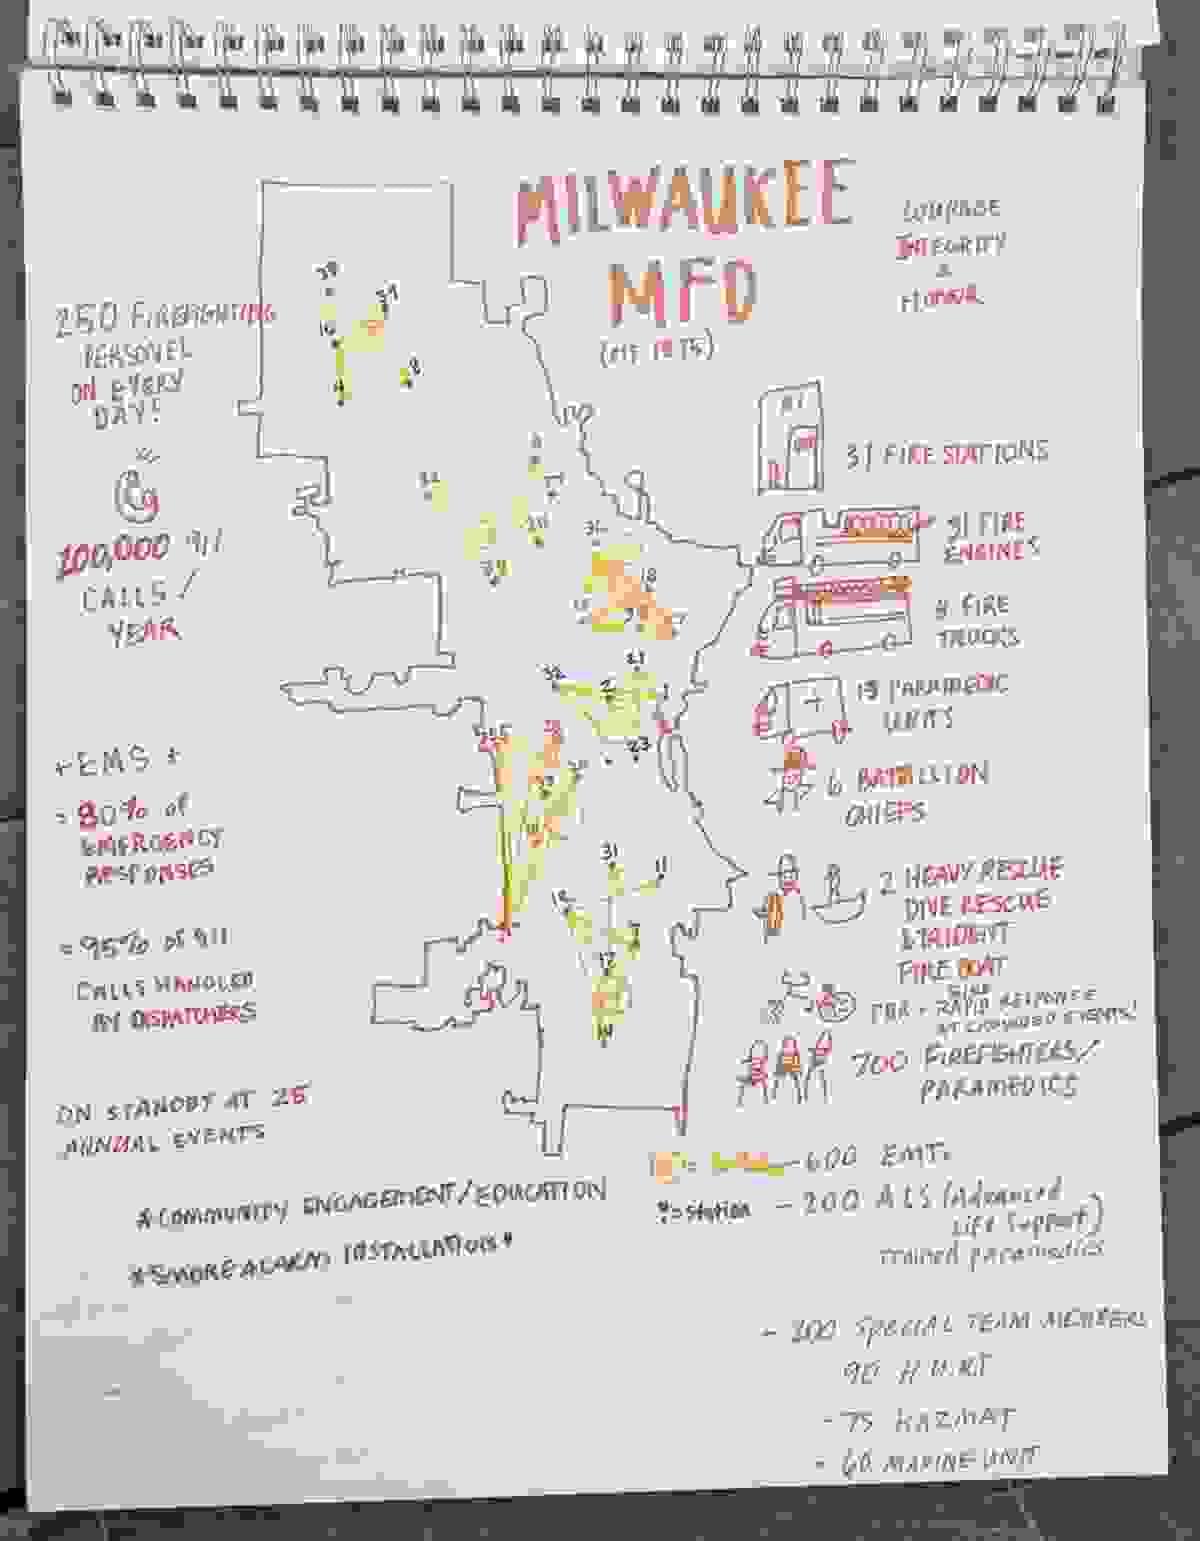 MILWAUKEE
MFD
(EST 1875)
COURAGE
INTEGRITY
&
HONOR
250 FIREFIGHTING
PERSONEL
ON EVERY
DAY!
100,000 911
CALLS /
YEAR
+ EMS +
= 80% of
EMERGENCY
RESPONSES
= 95% OF 911
CALLS HANDLED
BY DISPATCHERS
ON STANDBY AT 25
ANNUAL EVENTS
*COMMUNITY ENGAGEMENT/EDUCATION
*SMOKE ALARM INSTALLATIONS*
39
37
16
4
8
9
34
32
2
21
1
23
31
11
12
7
14
31 FIRE STATIONS
31 FIRE
ENGINES
9 FIRE
TRUCKS
PARAMEDIC
UNITS
6 BATTALLION
CHIEFS
2 HEAVY RESCUE
DIVE RESCUE
& TRIDENT
FIRE BOAT
BIKE
- RAPID RESPONSE
AT CROWDED EVENTS!
700 FIREFIGHTERS/
PARAMEDICS
- 600 EMTs
= Station
- 200 ALS (Advanced
Life Support)
trained paramedics
- 200 SPECIAL TEAM MEMBERS
90 H.U.R.T
- 75 HAZMAT
- 60 MARINE UNIT